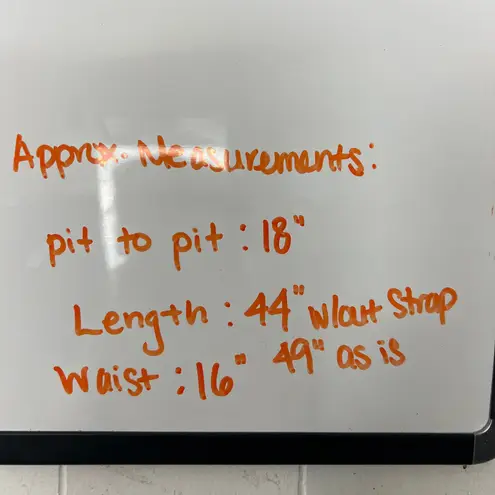 Approx. Measurements:
pit to pit : 18"
Length : 44" w/out strap
49" as is
Waist : 16"